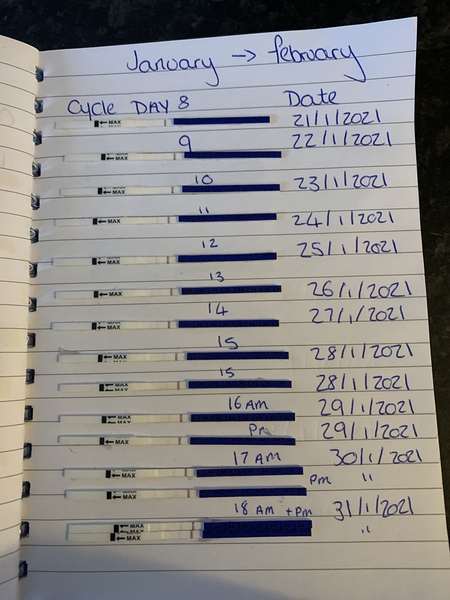 January → february
Cycle DAY 8 Date
←MAX 21/1/2021
9 22/1/2021
←MAX
10 23/1/2021
←MAX
11 24/1/2021
←MAX
12 25/1/2021
←MAX
13 26/1/2021
←MAX
14 27/1/2021
←MAX
15 28/1/2021
←MAX
15 28/1/2021
←MAX
16 Am 29/1/2021
←MAX
Pm 29/1/2021
←MAX
17 AM 30/1/2021
←MAX
Pm "
←MAX
18 AM + Pm 31/1/2021
←MAX "
←MAX